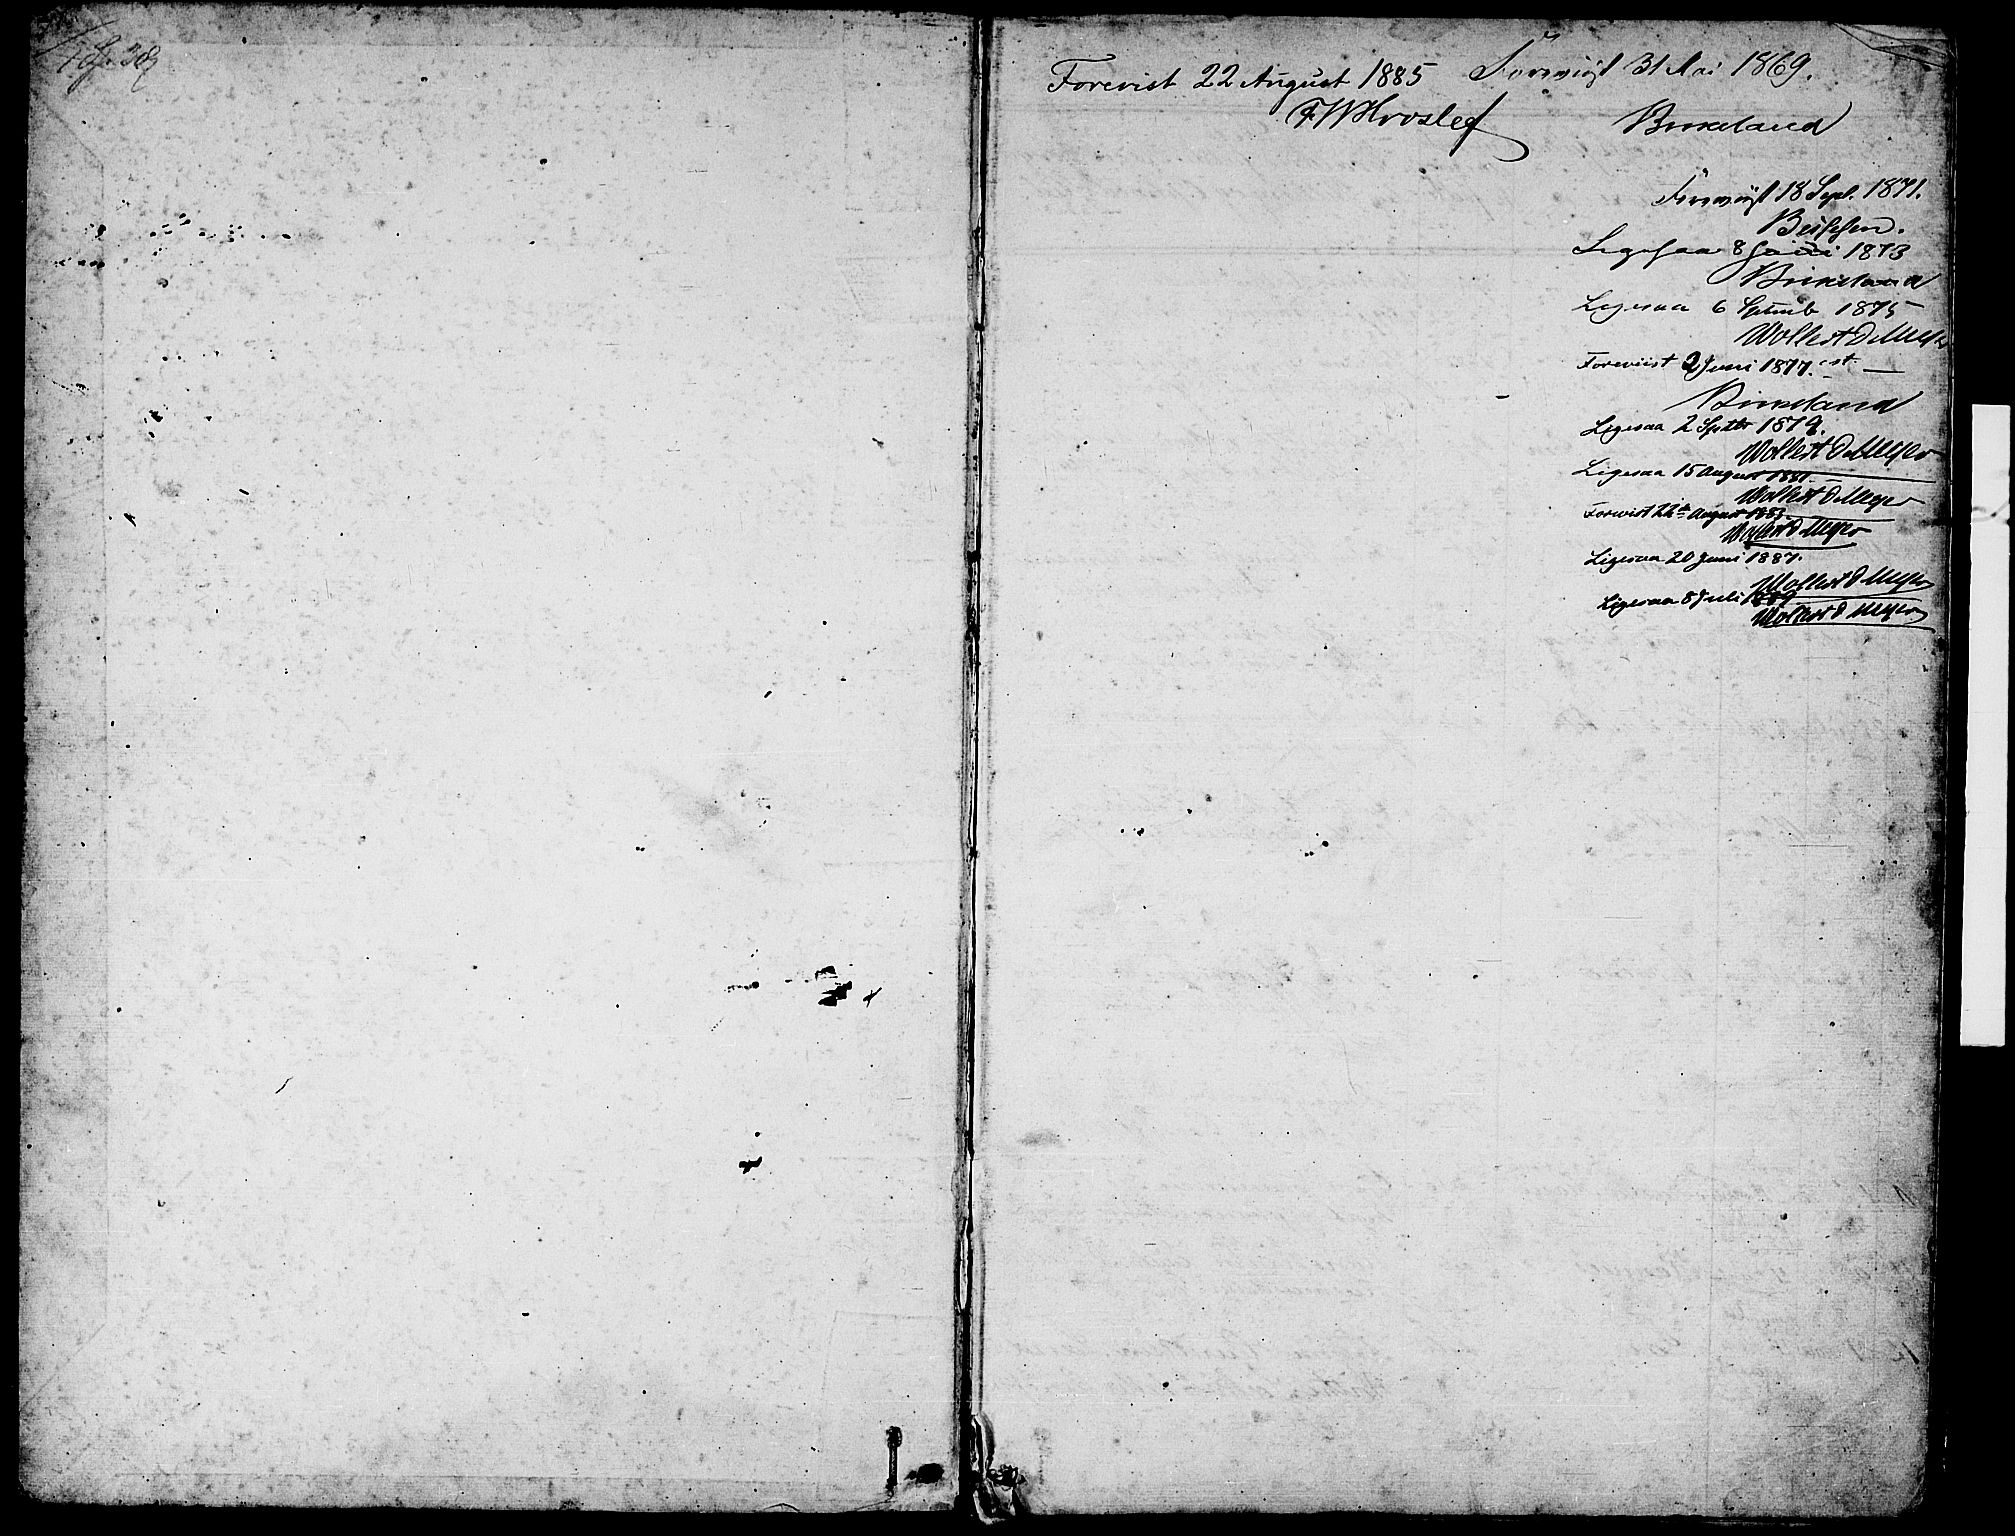 Forevist 22 August 1885
F W Hvoslef
Forevist 31 Mai 1869.
Birkeland
Forevist 18 Sept. 1871.
Ligesaa 8 Juni 1873
Birkeland
Ligesaa 6 Septemb 1875
Wollert D Meyer
Foreviist 2 Juni 1877.
Birkeland
Ligesaa 2 Septbr 1879.
Wollert D Meyer
Ligesaa 15 August 1881.
Wollert D Meyer
Forevist 22 August 1883.
Wollert D Meyer
Ligesaa 20 Juni 1887.
Wollert D Meyer
Ligesaa 8 Juli 1889
Wollert D Meyer